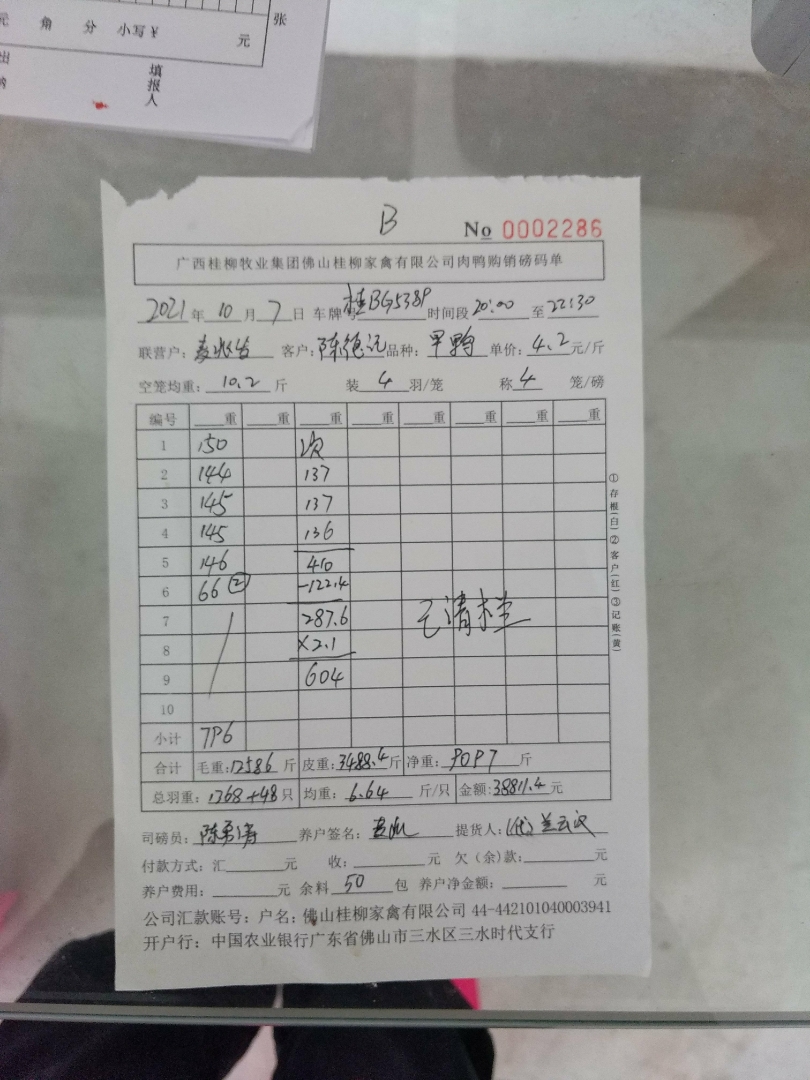 元 角 分 小写￥ 元
张
填报人
B
No 0002286
广西桂柳牧业集团佛山桂柳家禽有限公司肉鸭购销磅码单
2021年10月7日 车牌号 桂BG538P 时间段 20:00 至 22:30
联营户： 客户：陈德远 品种： 单价：4.2元/斤
空笼均重：10.2斤 装4羽/笼 称4笼/磅
编号 重 重 重 重 重 重 重 重
1 150 次
2 144 137
3 145 137
4 145 136
5 146 410
6 66② -122.4
7 287.6
8 ×2.1
9 604
10
小计 796
已清栏
合计 毛重：12586斤 皮重：3488.4斤 净重：9097斤
总羽重：1368+48只 均重：6.64斤/只 金额：38811.4元
司磅员： 养户签名： 提货人：
付款方式：汇 元 收： 元 欠（余）款： 元
养户费用： 元 余料50包 养户净金额： 元
公司汇款账号：户名：佛山桂柳家禽有限公司 44-442101040003941
开户行：中国农业银行广东省佛山市三水区三水时代支行
①存根（白）②客户（红）③记账（黄）